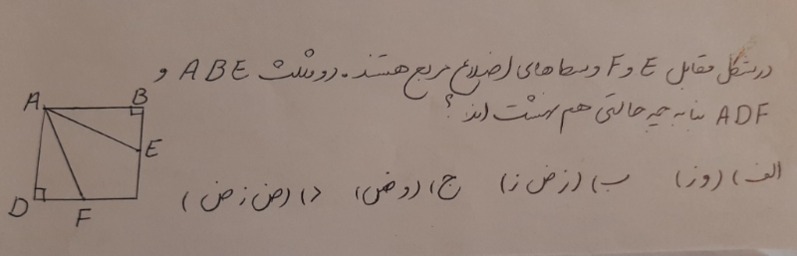 در شکل مقابل E و F وسط‌های اضلاع مربع هستند. دو مثلث ABE و
ADF بنا به چه حالتی هم نهشت اند؟
الف) (وز) ب) (ز ض ز) ج) (وض) د) (ض ز ض)
A
B
E
D
F